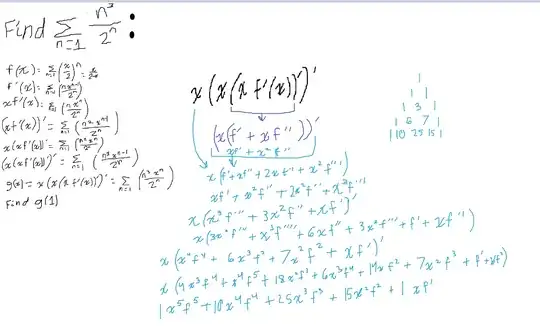 Find ∑_{n=1} n³/2ⁿ :
f(x) = ∑_{n=1} (x/2)ⁿ = x/2-x
f'(x) = ∑_{n=1} (nxⁿ⁻¹/2ⁿ)
xf'(x) = ∑_{n=1} (nxⁿ/2ⁿ)
(xf'(x))' = ∑_{n=1} (n²xⁿ⁻¹/2ⁿ)
x(xf'(x))' = ∑_{n=1} (n²xⁿ/2ⁿ)
(x(xf'(x))')' = ∑_{n=1} (n³xⁿ⁻¹/2ⁿ)
g(x) = x(x(xf'(x))')' = ∑_{n=1} (n³xⁿ/2ⁿ)
Find g(1)
x(x(xf'(x))')'
(x(f' + xf''))'
xf' + x²f''
x(f' + xf'' + 2xf'' + x²f''')
xf' + x²f'' + 2x²f'' + x³f'''
x(x³f''' + 3x²f'' + xf')'
x(3x²f''' + x³f'''' + 6xf'' + 3x²f''' + f' + xf'')
x(x⁴f⁴ + 6x³f³ + 7x²f² + xf')'
x(4x³f⁴ + x⁴f⁵ + 18x²f³ + 6x³f⁴ + 14xf² + 7x²f³ + f' + xf²)
1x⁵f⁵ + 10x⁴f⁴ + 25x³f³ + 15x²f² + 1xf'
1
1 1
1 3 1
1 6 7 1
1 10 25 15 1